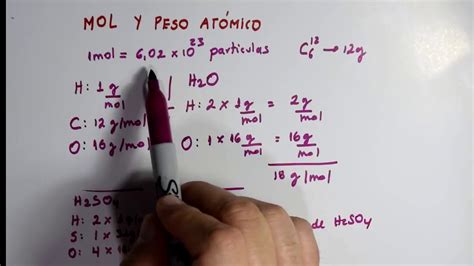 MOL Y PESO ATÓMICO
1mol = 6,02 x 10²³ particulas C₆¹² → 12g
H: 1 g/mol
C: 12 g/mol
O: 16 g/mol
H₂O
H: 2 x 1 g/mol = 2g/mol
O: 1 x 16 g/mol = 16g/mol
18 g/mol
H₂SO₄
H: 2 x
S: 1 x
O: 4 x
de H₂SO₄